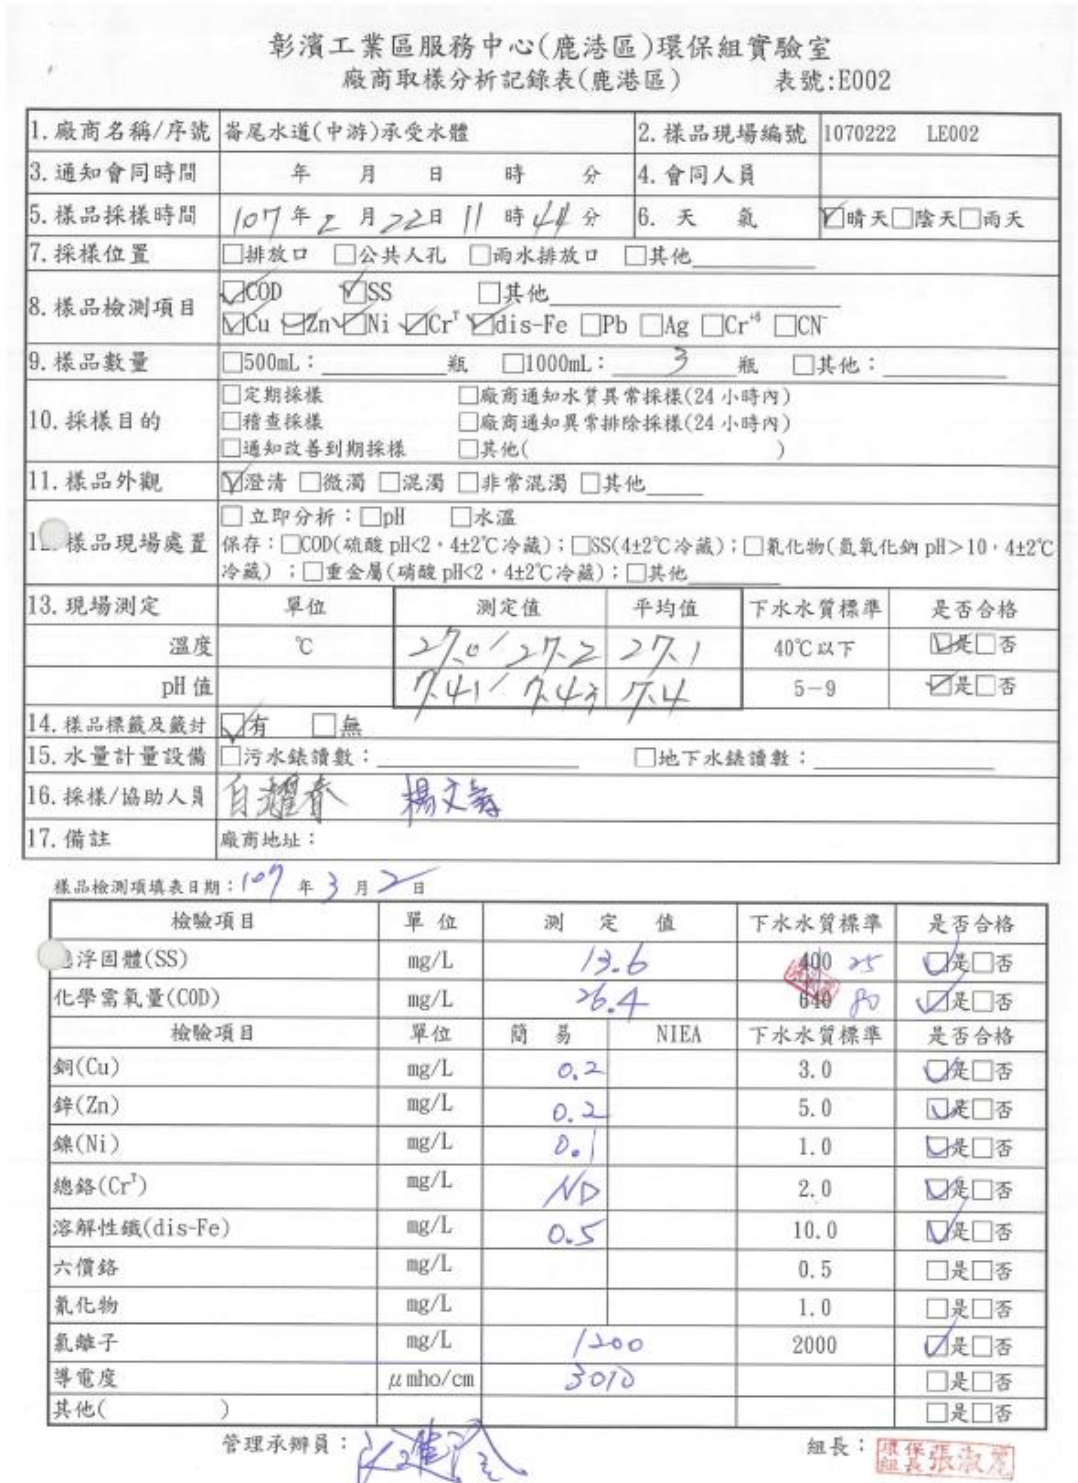 彰濱工業區服務中心(鹿港區)環保組實驗室
廠商取樣分析記錄表(鹿港區) 表號:E002
1.廠商名稱/序號 崙尾水道(中游)承受水體 2.樣品現場編號 1070222 LE002
3.通知會同時間 年 月 日 時 分 4.會同人員
5.樣品採樣時間 107年2月22日11時44分 6.天氣 ☑晴天□陰天□雨天
7.採樣位置 □排放口 □公共人孔 □雨水排放口 □其他
8.樣品檢測項目 ☑COD ☑SS □其他
☑Cu ☑Zn ☑Ni ☑Crᵀ ☑dis-Fe □Pb □Ag □Cr⁺⁶ □CN⁻
9.樣品數量 □500mL: 瓶 □1000mL: 3 瓶 □其他:
10.採樣目的 □定期採樣 □廠商通知水質異常採樣(24小時內)
□稽查採樣 □廠商通知異常排除採樣(24小時內)
□通知改善到期採樣 □其他( )
11.樣品外觀 ☑澄清 □微濁 □混濁 □非常混濁 □其他
樣品現場處置 □立即分析:□pH □水溫
保存:□COD(硫酸 pH<2,4±2℃冷藏);□SS(4±2℃冷藏);□氰化物(氫氧化鈉 pH>10,4±2℃
冷藏);□重金屬(硝酸 pH<2,4±2℃冷藏);□其他
13.現場測定 單位 測定值 平均值 下水水質標準 是否合格
溫度 ℃ 27.0/27.2 27.1 40℃以下 ☑是□否
pH值 7.41/7.43 7.4 5-9 ☑是□否
14.樣品標籤及籤封 ☑有 □無
15.水量計量設備 □污水錶讀數: □地下水錶讀數:
16.採樣/協助人員
17.備註 廠商地址:
樣品檢測項填表日期:107年3月2日
檢驗項目 單位 測定值 下水水質標準 是否合格
浮固體(SS) mg/L 13.6 400 25 ☑是□否
化學需氧量(COD) mg/L 26.4 640 80 ☑是□否
檢驗項目 單位 簡易 NIEA 下水水質標準 是否合格
銅(Cu) mg/L 0.2 3.0 ☑是□否
鋅(Zn) mg/L 0.2 5.0 ☑是□否
鎳(Ni) mg/L 0.1 1.0 ☑是□否
總鉻(Crᵀ) mg/L ND 2.0 ☑是□否
溶解性鐵(dis-Fe) mg/L 0.5 10.0 ☑是□否
六價鉻 mg/L 0.5 □是□否
氰化物 mg/L 1.0 □是□否
氯離子 mg/L 1200 2000 ☑是□否
導電度 μmho/cm 3010 □是□否
其他( ) □是□否
管理承辦員: 組長: 環保組長張淑